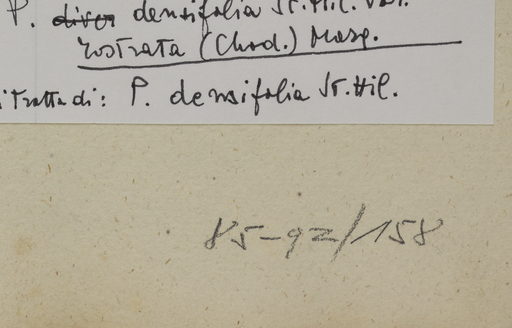 P. diver densifolia St. Hil. var.
rostrata (Chod.) Masp.
si tratta di: P. densifolia St. Hil.
85-92/158